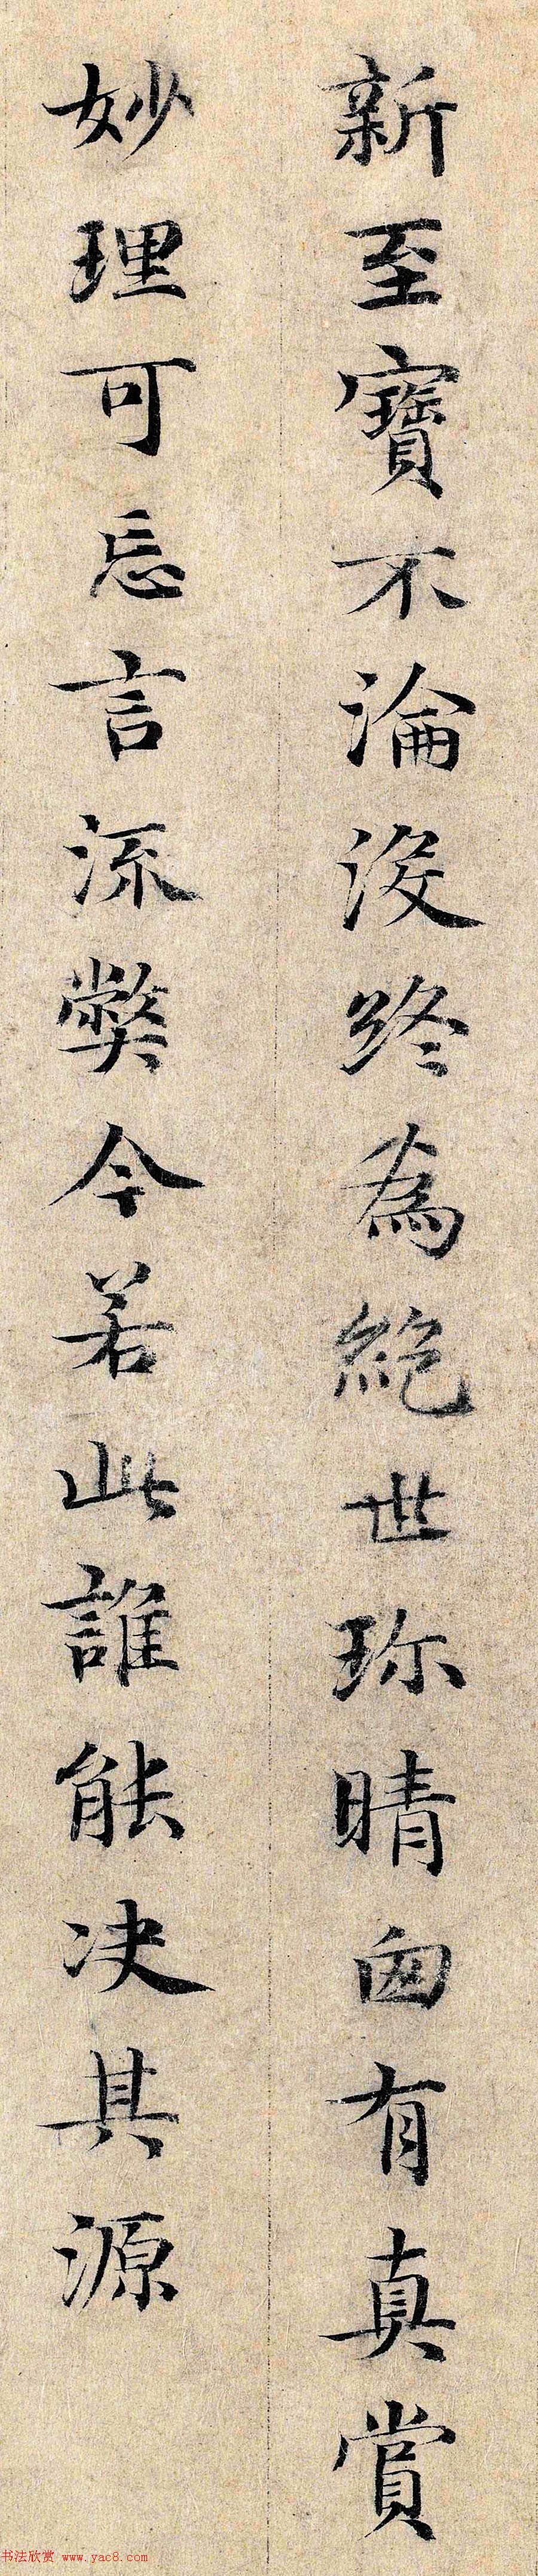 新至寶不淪没終為絕世珎晴囱有真賞
妙理可忘言流弊今若此誰能决其源
书法欣赏 www.yac8.com